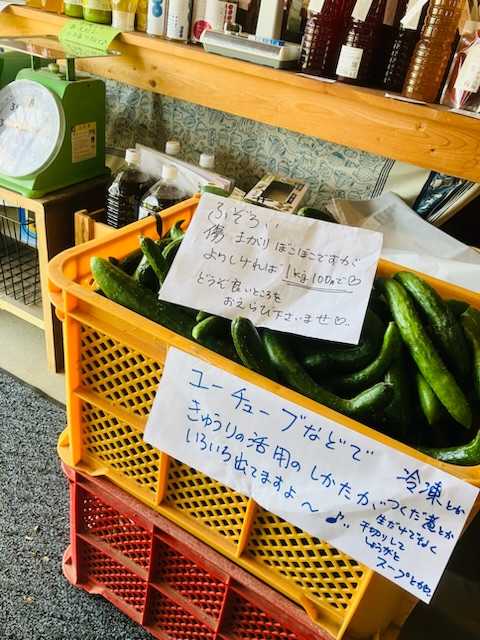 ふぞろい
傷 まがり ぼこぼこですが
よりしければ 1kg 100円で♡
どうぞ良いところを
おえらび下さいませ♡
ユーチューブなどで
きゅうりの活用のしかたが
いろいろ出てますよ〜♪
冷凍とか
つくだ煮とか
生だけでなく
千切りして
しょうがと
スープとかね